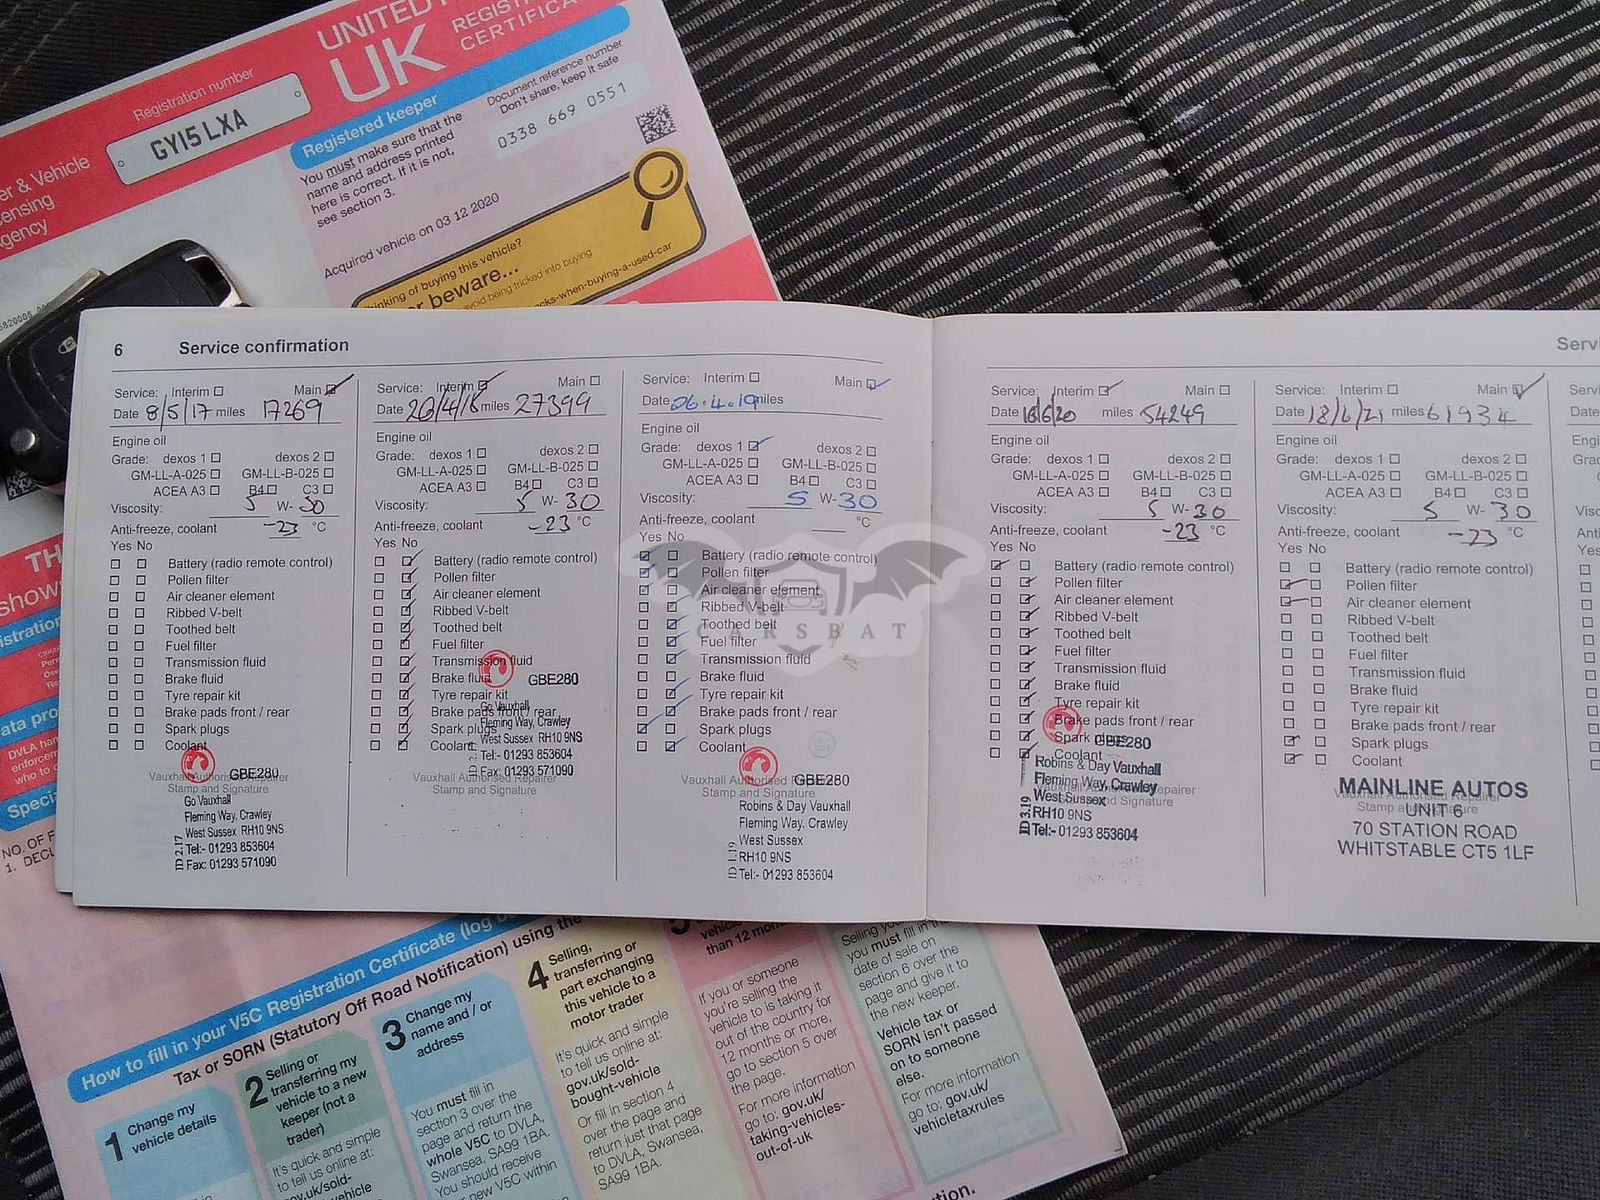 UNITED
UK
REGISTR
CERTIFICA
Registration number
GY15 LXA
er & Vehicle
censing
gency
Registered keeper
Document reference number
Don't share, keep it safe
0338 669 0551
You must make sure that the
name and address printed
here is correct. If it is not,
see section 3.
Acquired vehicle on 03 12 2020
hinking of buying this vehicle?
r beware...
avoid being tricked into buying
cks-when-buying-a-used-car
6 Service confirmation
Service: Interim Main
Date 8/5/17 miles 17269
Engine oil
Grade: dexos 1 dexos 2
GM-LL-A-025 GM-LL-B-025
ACEA A3 B4 C3
Viscosity: 5 W- 30
Anti-freeze, coolant -23 °C
Yes No
Battery (radio remote control)
Pollen filter
Air cleaner element
Ribbed V-belt
Toothed belt
Fuel filter
Transmission fluid
Brake fluid
Tyre repair kit
Brake pads front / rear
Spark plugs
Coolant
GBE280
Vauxhall Authorised Repairer
Stamp and Signature
Go Vauxhall
Fleming Way, Crawley
West Sussex RH10 9NS
Tel:- 01293 853604
Fax: 01293 571090
ID 2.17
Service: Interim Main
Date 20/4/18 miles 27399
Engine oil
Grade: dexos 1 dexos 2
GM-LL-A-025 GM-LL-B-025
ACEA A3 B4 C3
Viscosity: 5 W- 30
Anti-freeze, coolant -23 °C
Yes No
Battery (radio remote control)
Pollen filter
Air cleaner element
Ribbed V-belt
Toothed belt
Fuel filter
Transmission fluid
Brake fluid
GBE280
Tyre repair kit
Brake pads front / rear
Spark plugs
Coolant
Go Vauxhall
Fleming Way, Crawley
West Sussex RH10 9NS
Tel:- 01293 853604
Fax: 01293 571090
Vauxhall Authorised Repairer
Stamp and Signature
Service: Interim Main
Date 26.4.19 miles
Engine oil
Grade: dexos 1 dexos 2
GM-LL-A-025 GM-LL-B-025
ACEA A3 B4 C3
Viscosity: 5 W- 30
Anti-freeze, coolant °C
Yes No
Battery (radio remote control)
Pollen filter
Air cleaner element
Ribbed V-belt
Toothed belt
Fuel filter
Transmission fluid
Brake fluid
Tyre repair kit
Brake pads front / rear
Spark plugs
Coolant
CARSBAT
GBE280
Vauxhall Authorised Repairer
Stamp and Signature
Robins & Day Vauxhall
Fleming Way, Crawley
West Sussex
RH10 9NS
Tel:- 01293 853604
ID 1.19
Servi
Service: Interim Main
Date 18/6/20 miles 54249
Engine oil
Grade: dexos 1 dexos 2
GM-LL-A-025 GM-LL-B-025
ACEA A3 B4 C3
Viscosity: 5 W- 30
Anti-freeze, coolant -23 °C
Yes No
Battery (radio remote control)
Pollen filter
Air cleaner element
Ribbed V-belt
Toothed belt
Fuel filter
Transmission fluid
Brake fluid
Tyre repair kit
Brake pads front / rear
Spark plugs
Coolant
GBE280
Robins & Day Vauxhall
Fleming Way, Crawley
West Sussex
RH10 9NS
Tel:- 01293 853604
ID 3.19
Vauxhall Authorised Repairer
Stamp and Signature
Service: Interim Main
Date 18/6/21 miles 61934
Engine oil
Grade: dexos 1 dexos 2
GM-LL-A-025 GM-LL-B-025
ACEA A3 B4 C3
Viscosity: 5 W- 30
Anti-freeze, coolant -23 °C
Yes No
Battery (radio remote control)
Pollen filter
Air cleaner element
Ribbed V-belt
Toothed belt
Fuel filter
Transmission fluid
Brake fluid
Tyre repair kit
Brake pads front / rear
Spark plugs
Coolant
Vauxhall Authorised Repairer
Stamp and Signature
MAINLINE AUTOS
UNIT 6
70 STATION ROAD
WHITSTABLE CT5 1LF
Servi
Date
Engi
Grad
Visc
Anti
Yes
TH
show
istration
ata pro
DVLA
enforcem
who to
Speci
NO. OF F
1. DECL
How to fill in your V5C Registration Certificate (log bo
Tax or SORN (Statutory Off Road Notification) using the
1 Change my
vehicle details
2 Selling or
transferring my
vehicle to a new
keeper (not a
trader)
It's quick and simple
to tell us online at:
gov.uk/sold-
vehicle
3 Change my
name and / or
address
You must fill in
section 3 over the
page and return the
whole V5C to DVLA,
Swansea, SA99 1BA.
You should receive
new V5C within
4 Selling,
transferring or
part exchanging
this vehicle to a
motor trader
It's quick and simple
to tell us online at:
gov.uk/sold-
bought-vehicle
Or fill in section 4
over the page and
return just that page
to DVLA, Swansea,
SA99 1BA.
5
vehicle
than 12 mon
If you or someone
you're selling the
vehicle to is taking it
out of the country for
12 months or more,
go to section 5 over
the page.
For more information
go to: gov.uk/
taking-vehicles-
out-of-uk
Selling you
you must fill in the
date of sale on
section 6 over the
page and give it to
the new keeper.
Vehicle tax or
SORN isn't passed
on to someone
else.
For more information
go to: gov.uk/
vehicletaxrules
tion.